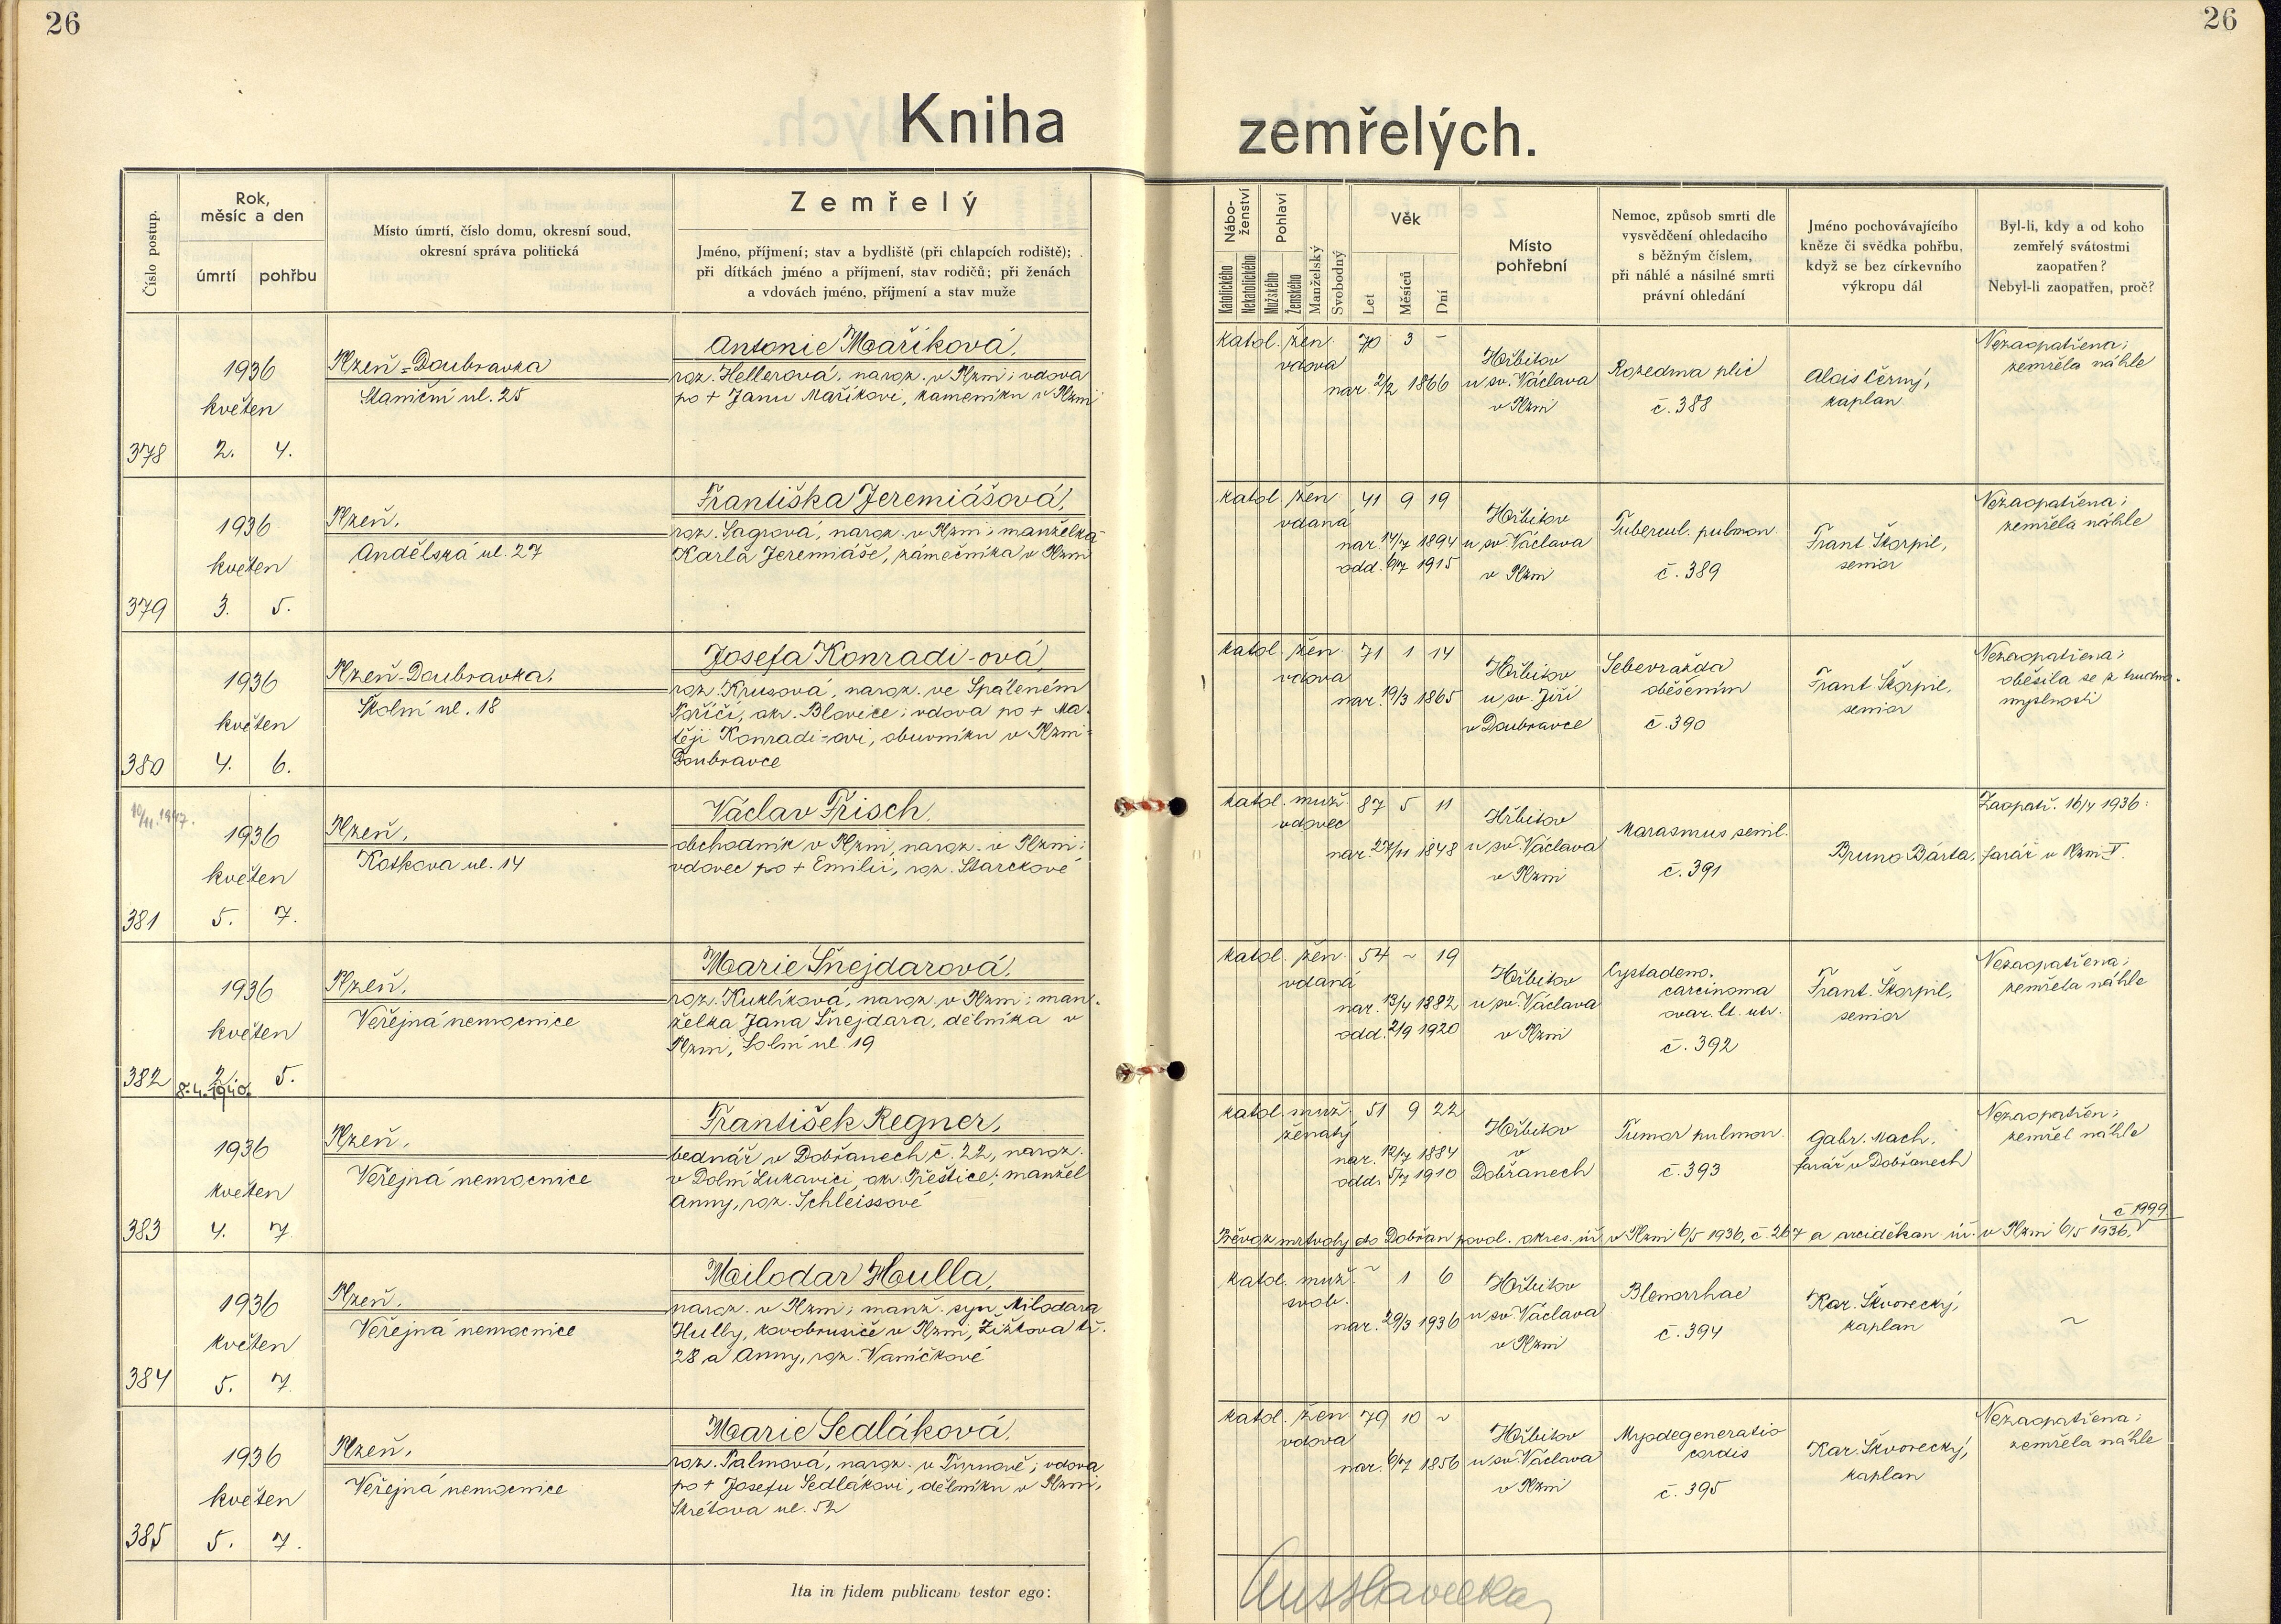 26
26
Kniha zemřelých.
Číslo postup.
Rok, měsíc a den
úmrtí
pohřbu
Místo úmrtí, číslo domu, okresní soud,
okresní správa politická
Zemřelý
Jméno, příjmení; stav a bydliště (při chlapcích rodiště);
při dítkách jméno a příjmení, stav rodičů; při ženách
a vdovách jméno, příjmení a stav muže
Nábo-
ženství
Katolického
Nekatolického
Pohlaví
Mužského
Ženského
Manželský
Svobodný
Věk
Let
Měsíců
Dní
Místo
pohřební
Nemoc, způsob smrti dle
vysvědčení ohledacího
s běžným číslem,
při náhlé a násilné smrti
právní ohledání
Jméno pochovávajícího
kněze či svědka pohřbu,
když se bez církevního
výkropu dál
Byl-li, kdy a od koho
zemřelý svátostmi
zaopatřen?
Nebyl-li zaopatřen, proč?
378
1936
květen
2. 4.
Plzeň-Doubravka
Staniční ul. 25
Antonie Maříková,
roz. Hellerová, naroz. v Plzni; vdova
po + Janu Maříkovi, kameníku v Plzni
katol. žen. 70 3 –
vdova
nar. 2/2 1866
Hřbitov
u sv. Václava
v Plzni
Rozedma plic
č. 388
Alois Černý,
kaplan
Nezaopatřena;
zemřela náhle
379
1936
květen
3. 5.
Plzeň,
Andělská ul. 27
Františka Jeremiášová,
roz. Sagrová, naroz. v Plzni; manželka
Karla Jeremiáše, zámečníka v Plzni
katol. žen. 41 9 19
vdaná
nar. 14/7 1894
odd. 6/7 1915
Hřbitov
u sv. Václava
v Plzni
Tubercul. pulmon.
č. 389
Frant. Škorpil,
senior
Nezaopatřena;
zemřela náhle
380
1936
květen
4. 6.
Plzeň-Doubravka,
Školní ul. 18
Josefa Konradi-ová,
roz. Krusová, naroz. ve Spáleném
Poříčí, okr. Blovice; vdova po + Ma-
těji Konradi-ovi, obuvníku v Plzni-
Doubravce
katol. žen. 71 1 14
vdova
nar. 19/3 1865
Hřbitov
u sv. Jiří
v Doubravce
Sebevražda
oběšením
č. 390
Frant. Škorpil,
senior
Nezaopatřena;
oběsila se z trudno-
myslnosti
381
1936
květen
5. 7.
Plzeň,
Kotkova ul. 14
Václav Frisch,
obchodník v Plzni, naroz. v Plzni;
vdovec po + Emilii, roz. Starckové
katol. muž. 87 5 11
vdovec
nar. 24/11 1848
Hřbitov
u sv. Václava
v Plzni
Marasmus senil.
č. 391
Zaopatř. 16/4 1936:
Bruno Bárta, farář v Plzni V.
382
1936
květen
2. 5.
Plzeň,
Veřejná nemocnice
Marie Šnejdarová,
roz. Kuklíková, naroz. v Plzni; man-
želka Jana Šnejdara, dělníka v
Plzni, Solní ul. 19
katol. žen. 54 ~ 19
vdaná
nar. 13/4 1882
odd. 2/9 1920
Hřbitov
u sv. Václava
v Plzni
Cystadeno.
carcinoma
ovar. lt. utr.
č. 392
Frant. Škorpil,
senior
Nezaopatřena;
zemřela náhle
383
8.4.1940.
1936
květen
4. 7
Plzeň,
Veřejná nemocnice
František Regner,
bednář v Dobřanech č. 22, naroz.
v Dolní Lukavici, okr. Přeštice; manžel
Anny, roz. Schleissové
katol. muž. 51 9 22
ženatý
nar. 12/7 1884
odd. 5/7 1910
Hřbitov
v
Dobřanech
Tumor pulmon.
č. 393
Gabr. Mach,
farář v Dobřanech
Nezaopatřen;
zemřel náhle
č 1999
Převoz mrtvoly do Dobřan povol. okres. úř. v Plzni 6/5 1936, č. 267 a arciděkan. úř. v Plzni 6/5 1936,
384
1936
květen
5. 7.
Plzeň,
Veřejná nemocnice
Milodar Hulla,
naroz. v Plzni; manž. syn Milodara
Hully, kovobrusiče v Plzni, Žižkova tř.
28 a Anny, roz. Vaníčkové
katol. muž. ~ 1 6
svob.
nar. 29/3 1936
Hřbitov
u sv. Václava
v Plzni
Blenorrhae
č. 394
Kar. Škvorecký,
kaplan
~
385
1936
květen
5. 7.
Plzeň,
Veřejná nemocnice
Marie Sedláková,
roz. Palmová, naroz. v Turnově; vdova
po + Josefu Sedlákovi, dělníku v Plzni,
Skrétova ul. 52
katol. žen 79 10 ~
vdova
nar. 6/7 1856
Hřbitov
u sv. Václava
v Plzni
Myodegeneratio
cordis
č. 395
Kar. Škvorecký,
kaplan
Nezaopatřena;
zemřela náhle
Ita in fidem publicam testor ego: